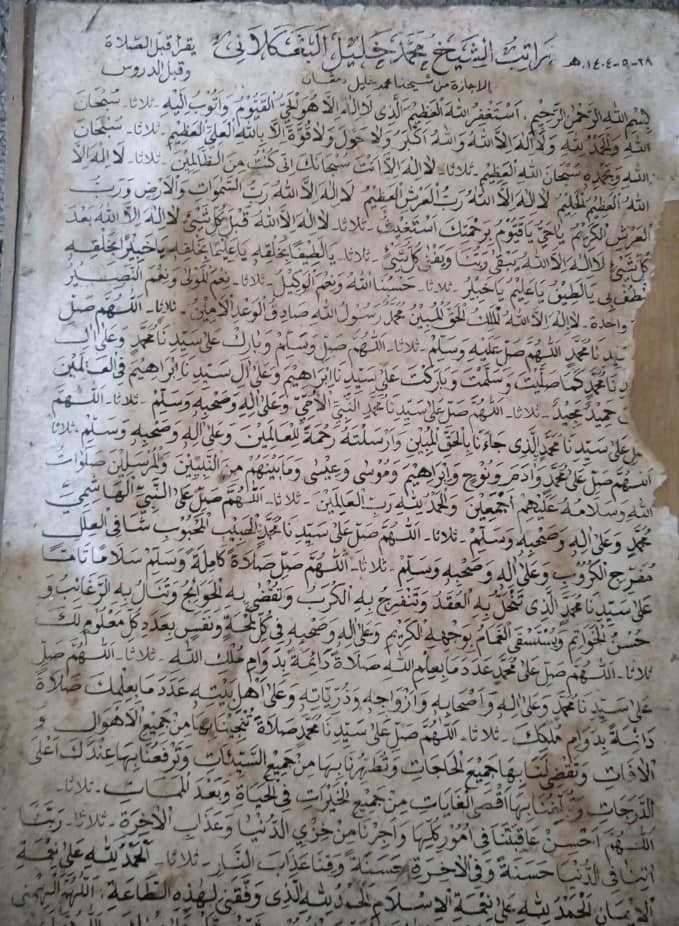 ٢٨-٥-١٤٠٤هـ راتب الشيخ محمد خليل يقرأ قبل الصلاة
وقبل الدروس
الاجازة من شيخنا محمد خليل
بسم الله الرحمن الرحيم. استغفر الله العظيم الذى لا اله الا هو الحى القيوم واتوب اليه. ثلاثا. سبحان
الله والحمد لله ولا اله الا الله والله اكبر ولا حول ولا قوة الا بالله العلي العظيم. ثلاثا. سبحان
الله وبحمده سبحان الله العظيم. ثلاثا. لا اله الا انت سبحانك انى كنت من الظالمين. ثلاثا. لا اله الا
الله العظيم الحليم لا اله الا الله رب العرش العظيم لا اله الا الله رب السموات والارض ورب
العرش الكريم يا حي يا قيوم برحمتك استغيث. ثلاثا. لا اله الا الله قبل كل شئ لا اله الا الله بعد
كل شئ لا اله الا الله يبقى ربنا ويفنى كل شئ. ثلاثا. يا لطيفا بخلقه يا عليما بخلقه يا خبيرا بخلقه
الطف بى يا لطيف يا عليم يا خبير. ثلاثا. حسبنا الله ونعم الوكيل. ثلاثا. نعم المولى ونعم النصير
واحدة. لا اله الا الله الملك الحق المبين محمد رسول الله صادق الوعد الامين. ثلاثا. اللهم صل
سيدنا محمد اللهم صل عليه وسلم. ثلاثا. اللهم صل وسلم وبارك على سيدنا محمد وعلى ال
سيدنا محمد كما صليت وسلمت وباركت على سيدنا ابراهيم وعلى ال سيدنا ابراهيم فى العالمين
حميد مجيد. ثلاثا. اللهم صل على سيدنا محمد النبي الأمي وعلى اله وصحبه وسلم. ثلاثا. اللهم
صل على سيدنا محمد الذى جاءنا بالحق المبين وارسلته رحمة للعالمين وعلى اله وصحبه وسلم. ثلاثا
اللهم صل على محمد وادم ونوح وابراهيم وموسى وعيسى وما بينهم من النبيين والمرسلين صلوات
الله وسلامه عليهم اجمعين والحمد لله رب العالمين. ثلاثا. اللهم صل على النبي الهاشمي
محمد وعلى اله وصحبه وسلم. ثلاثا. اللهم صل على سيدنا محمد الحبيب المحبوب شافى العلل
مفرج الكروب وعلى اله وصحبه وسلم. ثلاثا. اللهم صل صلاة كاملة وسلم سلاما تاما
على سيدنا محمد الذى تنحل به العقد وتنفرج به الكرب وتقضى به الحوائج وتنال به الرغائب و
حسن الخواتيم ويستسقى الغمام بوجهه الكريم وعلى اله وصحبه فى كل لمحة ونفس بعدد كل معلوم لك
ثلاثا. اللهم صل على محمد عدد ما بعلم الله صلاة دائمة بدوام ملك الله. ثلاثا. اللهم صل
على سيدنا محمد وعلى اله واصحابه وازواجه وذرياته وعلى اهل بيته عدد ما بعلمك صلاة
دائمة بدوام ملكك. ثلاثا. اللهم صل على سيدنا محمد صلاة تنجينا بها من جميع الاهوال و
الافات وتقضى لنا بها جميع الحاجات وتطهرنا بها من جميع السيئات وترفعنا بها عندك اعلى
الدرجات وتبلغنا بها اقصى الغايات من جميع الخيرات فى الحياة وبعد الممات. ثلاثا.
اللهم احسن عاقبتنا فى امور كلها واجرنا من خزي الدنيا وعذاب الاخرة. ثلاثا. ربنا
اتنا فى الدنيا حسنة وفى الاخرة حسنة وقنا عذاب النار. ثلاثا. الحمد لله على نعمة
الايمان الحمد لله على نعمة الاسلام الحمد لله الذى وفقنى لهذه الطاعة. اللهم الهمنى